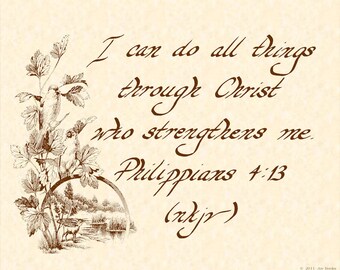 I can do all things
through Christ
who strengthens me.
Philippians 4:13
(nkjv)